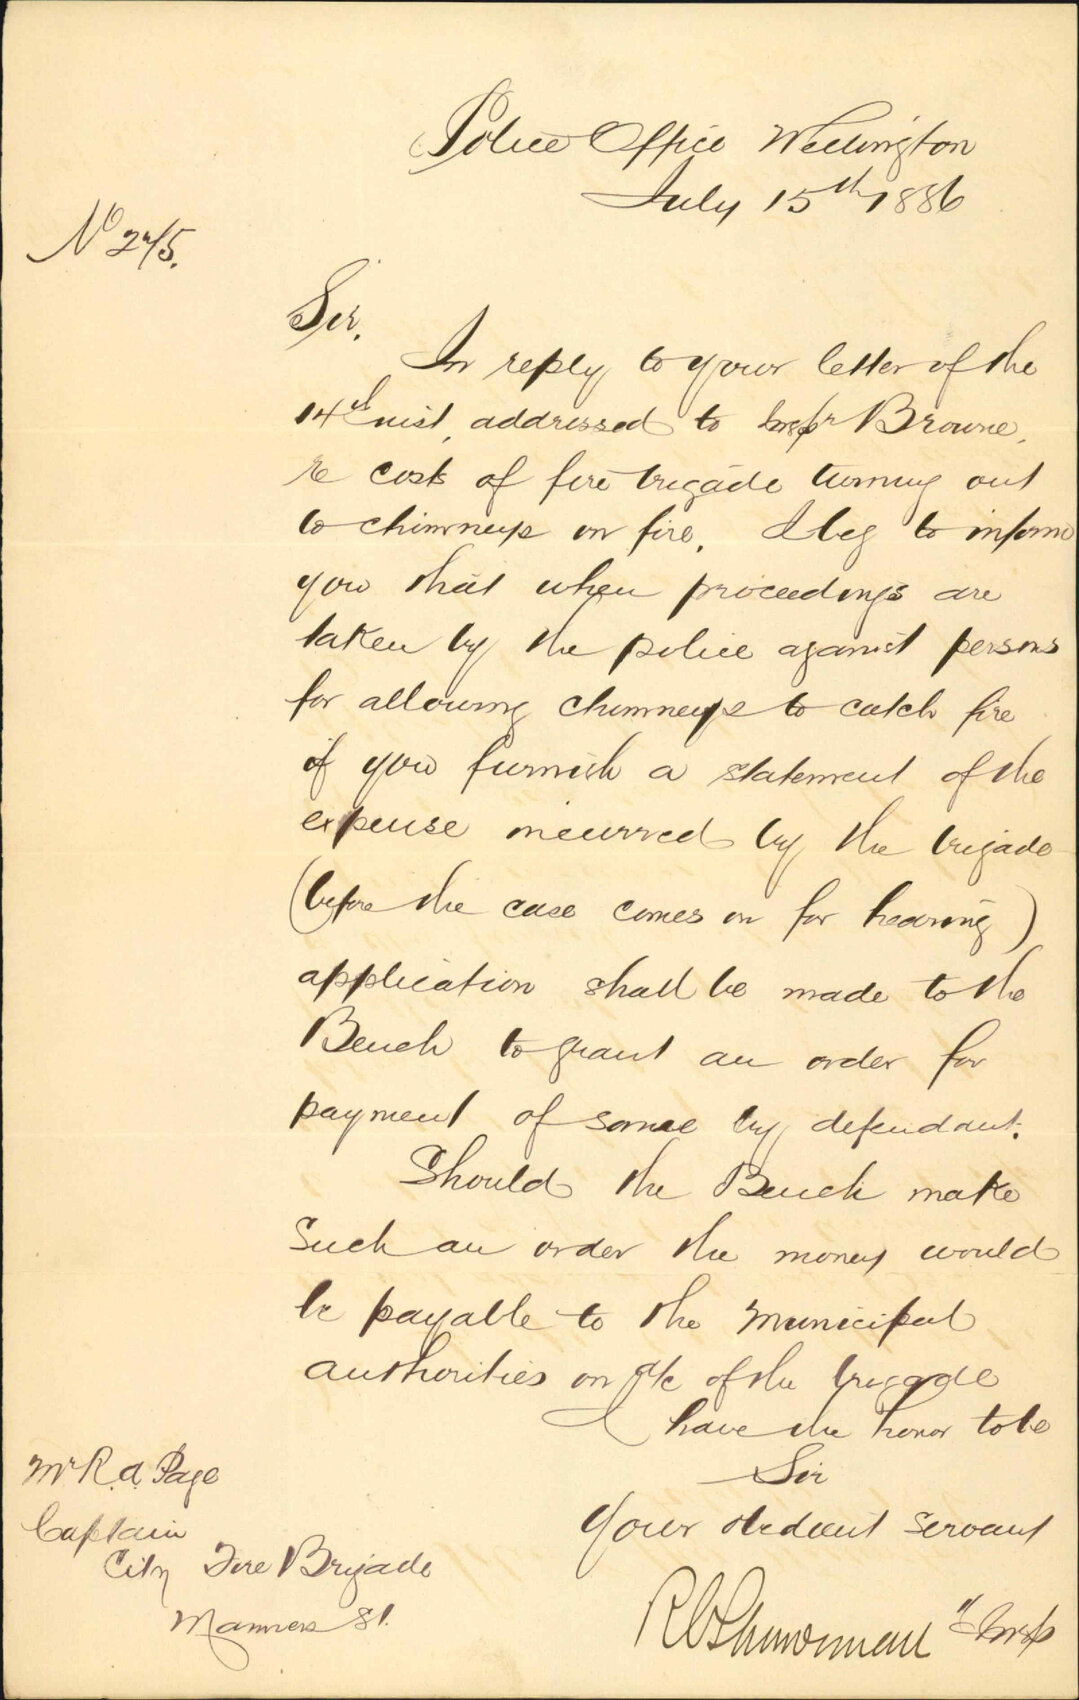 Police Office Wellington
July 15th 1886
No 245.
Sir.
In reply to your letter of the
14th inst, addressed to Inspr Browne,
re cost of fire brigade turning out
to chimneys on fire. I beg to inform
you that when proceedings are
taken by the police against persons
for allowing chimneys to catch fire
if you furnish a statement of the
expense incurred by the brigade
(before the case comes on for hearing)
application shall be made to the
Bench to grant an order for
payment of same by defendant.
Should the Bench make
such an order the money would
be payable to the Municipal
authorities on a/c of the brigade
I have the honor to be
Sir
Your obedient servant
Insp
Mr R. A. Page
Captain
City Fire Brigade
Manners St.